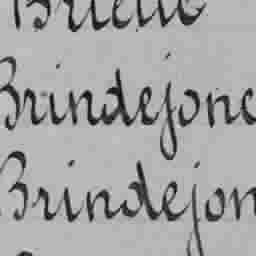 Brindejonc
Brindejon